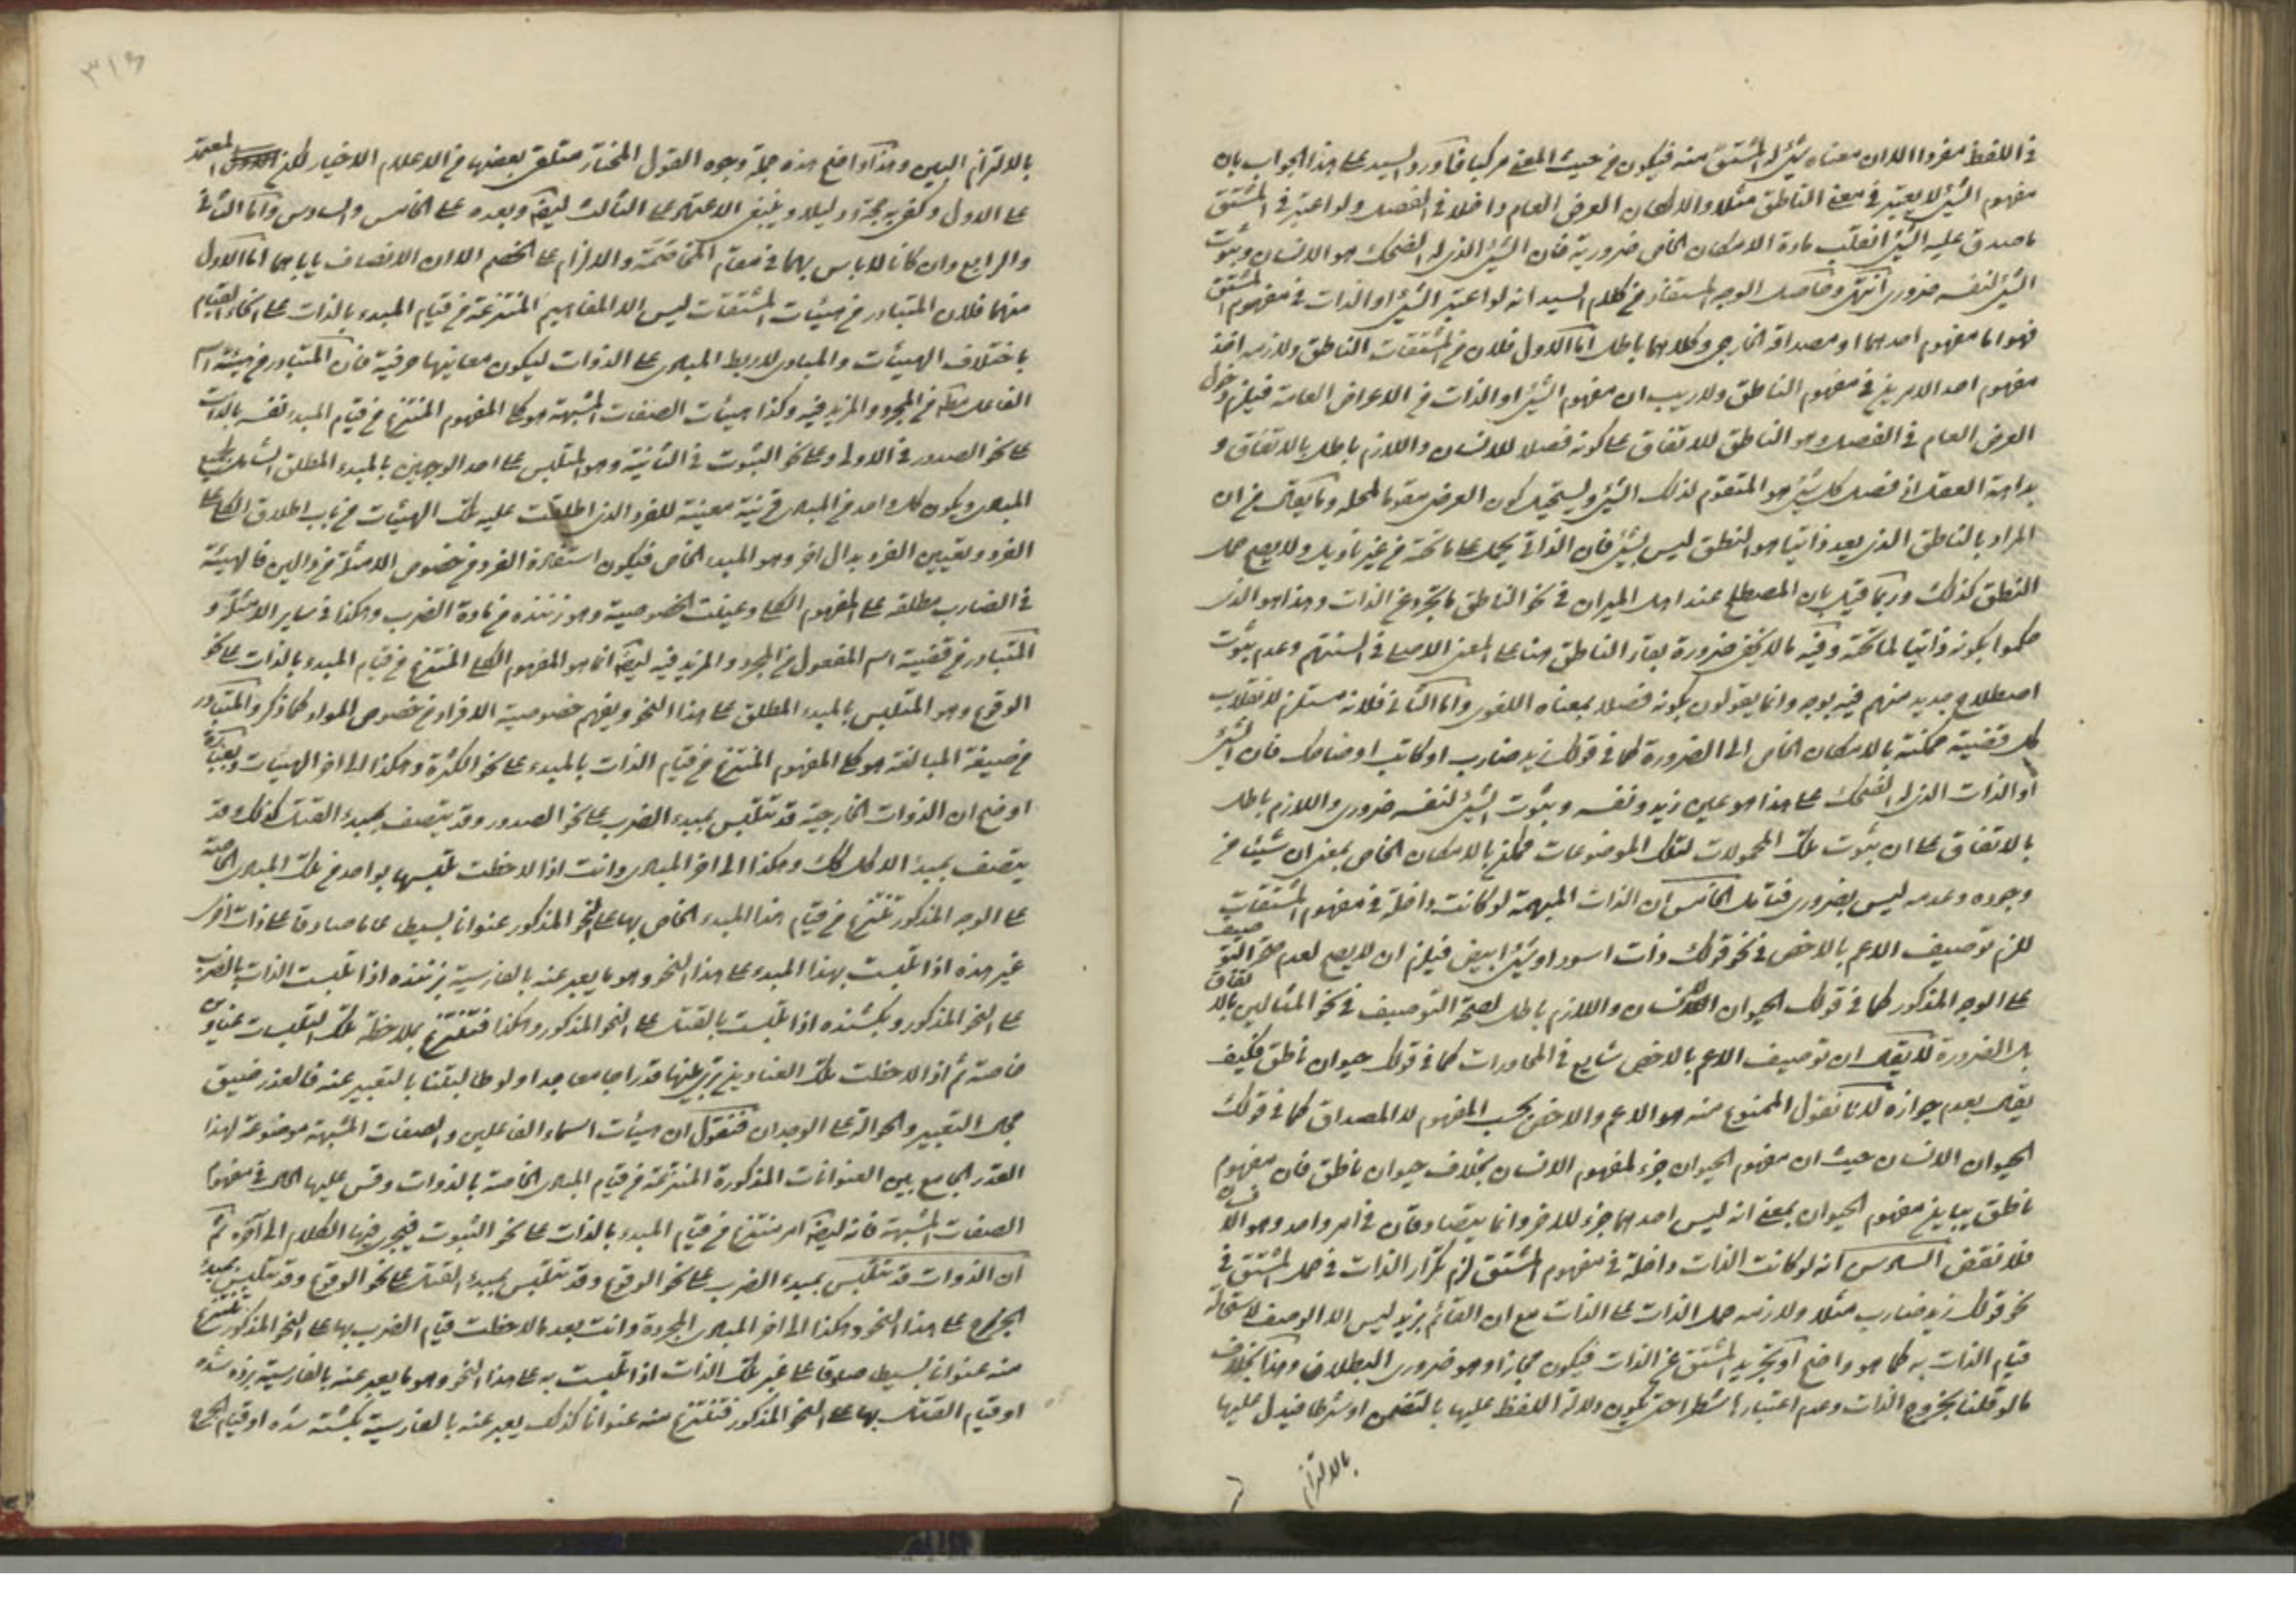 في اللفظ مفردا الا ان معناه شيء له المشتق منه فيكون من حيث المعنى مركبا فاورد السيد على هذا الجواب بان
مفهوم الشيء لا يعتبر في معنى الناطق مثلا والا لكان العرض العام داخلا في الفصل ولو اعتبر في المشتق
ما صدق عليه الشيء انقلب مادة الامكان الخاص ضرورية فان الشيء الذي له الضحك هو الانسان وثبوت
الشيء لنفسه ضروري انتهى وحاصل الوجه المستفاد من كلام السيد انه لو اعتبر الشيء او الذات في مفهوم المشتق
فهو اما مفهوم احدهما او مصداقه الخارجي وكلاهما باطل اما الاول فلان من المشتقات الناطق ولازمه اخذ
مفهوم احد الامرين في مفهوم الناطق ولا ريب ان مفهوم الشيء او الذات من الاعراض العامة فيلزم دخول
العرض العام في الفصل وهو الناطق للاتفاق على كونه فصلا للانسان واللازم باطل بالاتفاق و
بداهة العقل اذ فصل كل شيء هو المقوم لذلك الشيء ويستحيل كون العرض مقوما لمحله وما يقال من ان
المراد بالناطق الذي يعد ذاتيا هو النطق ليس بشيء فان الذاتي يحمل على ما تحته من غير تاويل ولا يصح حمل
النطق كذلك وربما قيل بان المصطلح عند اهل الميزان في نحو الناطق ما تجرد عن الذات وهذا هو الذي
حكموا بكونه ذاتيا لما تحته وفيه ما لا يخفى ضرورة بقاء الناطق هنا على المعنى الاصلي في السنتهم وعدم ثبوت
اصطلاح جديد منهم فيه بوجه وانما يقولون بكونه فصلا بمعناه اللغوي واما الثاني فلانه مستلزم لانقلاب
كل قضية ممكنة بالامكان الخاص الى الضرورة كما في قولك زيد ضارب او كاتب او ضاحك فان الشيء
او الذات الذي له الضحك على هذا هو عين زيد ونفسه وثبوت الشيء لنفسه ضروري واللازم باطل
بالاتفاق على ان ثبوت تلك المحمولات لتلك الموضوعات ممكن بالامكان الخاص بمعنى ان شيئا من
وجوده وعدمه ليس بضروري فتامل الخامس ان الذات المبهمة لو كانت داخلة في مفهوم المشتقات
للزم توصيف الاعم بالاخص في نحو قولك ذات اسود او شيء ابيض فيلزم ان لا يصح لعدم صحة التوصيف
على الوجه المذكور كما في قولك الحيوان الانسان واللازم باطل لصحة التوصيف في نحو المثالين بالاتفاق
بل الضرورة لا يقال ان توصيف الاعم بالاخص شايع في المحاورات كما في قولك حيوان ناطق فكيف
يقال بعدم جوازه لانا نقول الممنوع منه هو الاعم والاخص بحسب المفهوم لا المصداق كما في قولك
الحيوان الانسان حيث ان مفهوم الحيوان جزء لمفهوم الانسان بخلاف حيوان ناطق فان مفهوم
ناطق يباين مفهوم الحيوان بمعنى انه ليس احدهما جزء للاخر وانما يتصادقان في امر واحد وهو الانسان
فلا نقض السادس انه لو كانت الذات داخلة في مفهوم المشتق لزم تكرار الذات في حمل المشتق في
نحو قولك زيد ضارب مثلا ولازمه حمل الذات على الذات مع ان القائم بزيد ليس الا الوصف لاستحالة
قيام الذات به كما هو واضح او تجريد المشتق عن الذات فيكون مجازا وهو ضروري البطلان وهذا بخلاف
ما لو قلنا بخروج الذات وعدم اعتبارها شطرا حتى يكون دلالة اللفظ عليها بالتضمن او شرطا فيدل عليها
بالالتزام
٣١٦
بالالتزام البين وهذا واضح هذه جملة وجوه القول المختار متلقى بعضها من الاعلام الاخيار لكن المعتمد
على الاول وكفى به حجة ودليلا وينبغي الاعتماد على الثالث ايضا وبعده على الخامس والسادس واما الثاني
والرابع وان كانا لا باس بهما في مقام المخاصمة والالزام على الخصم الا ان الانصاف ياباهما اما الاول
منهما فلان المتبادر من هيئات المشتقات ليس الا المفاهيم المنتزعة من قيام المبدء بالذات على انحاء القيام
باختلاف الهيئات والمبادي لا ربط المبادي على الذوات ليكون معانيها حرفية فان المتبادر من هيئة اسم
الفاعل مطلقا من المجرد والمزيد فيه وكذا هيئات الصفات المشبهة هو كلي المفهوم المنتزع من قيام المبدء نفسه بالذات
على نحو الصدور في الاولى وعلى نحو الثبوت في الثانية وهو المتلبس على احد الوجهين بالمبدء المطلق الشامل لجميع
المبادي ويكون كل واحد من المبادي قرينة معينة للفرد الذي اطلقت عليه تلك الهيئات من باب اطلاق الكلي على
الفرد وتعيين الفرد بدال اخر وهو المبدء الخاص فيكون استفادة الفرد في خصوص الامثلة من دالين فالهيئة
في الضارب مطلقة على المفهوم الكلي وعينت الخصوصية وهو زننده من مادة الضرب وهكذا في ساير الامثلة و
المتبادر من قضية اسم المفعول من المجرد والمزيد فيه ايضا انما هو المفهوم الكلي المنتزع من قيام المبدء بالذات على نحو
الوقوع وهو المتلبس بالمبدء المطلق على هذا النحو ويفهم خصوصية الافراد من خصوص المواد كما ذكر والمتبادر
من صيغة المبالغة هو كلي المفهوم المنتزع من قيام الذات بالمبدء على نحو الكثرة وهكذا الى اخر الهيئات وبعبارة
اوضح ان الذوات الخارجية قد تتلبس بمبدء الضرب على نحو الصدور وقد يتصف بمبدء القتل كذلك وقد
يتصف بمبدء الاكل كك وهكذا الى اخر المبادي وانت اذا لاحظت تلبسها بواحد من تلك المبادي الخاصة
على الوجه المذكور تنتزع من قيام هذا المبدء الخاص بها على النحو المذكور عنوانا بسيطا عاما صادقا على ذات اخرى
غير هذه اذا تلبست بهذا المبدء على هذا النحو وهو ما يعبر عنه بالفارسية بزننده اذا تلبست الذات بالضرب
على النحو المذكور وبكشنده اذا تلبست بالقتل على النحو المذكور وهكذا فتنتزع بملاحظة تلك التلبسات عناوين
خاصة ثم اذا لاحظت تلك العناوين ترى بينها قدرا جامعا جدا ولو طالبتنا بالتعبير عنه فالعذر ضيق
مجال التعبير والحوالة على الوجدان فنقول ان هيئات اسماء الفاعلين والصفات المشبهة موضوعة لهذا
القدر الجامع بين العنوانات المذكورة المنتزعة من قيام المبادي الخاصة بالذوات وقس عليها الحال في مفهوم
الصفات المشبهة فانه ايضا امر منتزع من قيام المبدء بالذات على نحو الثبوت فيجري فيها الكلام الى آخره ثم
ان الذوات قد تتلبس بمبدء الضرب على نحو الوقوع وقد تتلبس بمبدء القتل على نحو الوقوع وقد تتلبس بمبدء
الجرح على هذا النحو وهكذا الى اخر المبادي المجردة وانت بعد ما لاحظت قيام الضرب بها على النحو المذكور تنتزع
منه عنوانا بسيطا صادقا على غير تلك الذات اذا تلبست به على هذا النحو وهو ما يعبر عنه بالفارسية بزده شده
او قيام القتل بها على النحو المذكور فتنتزع منه عنوانا كذلك يعبر عنه بالفارسية بكشته شده او قيام الجرح